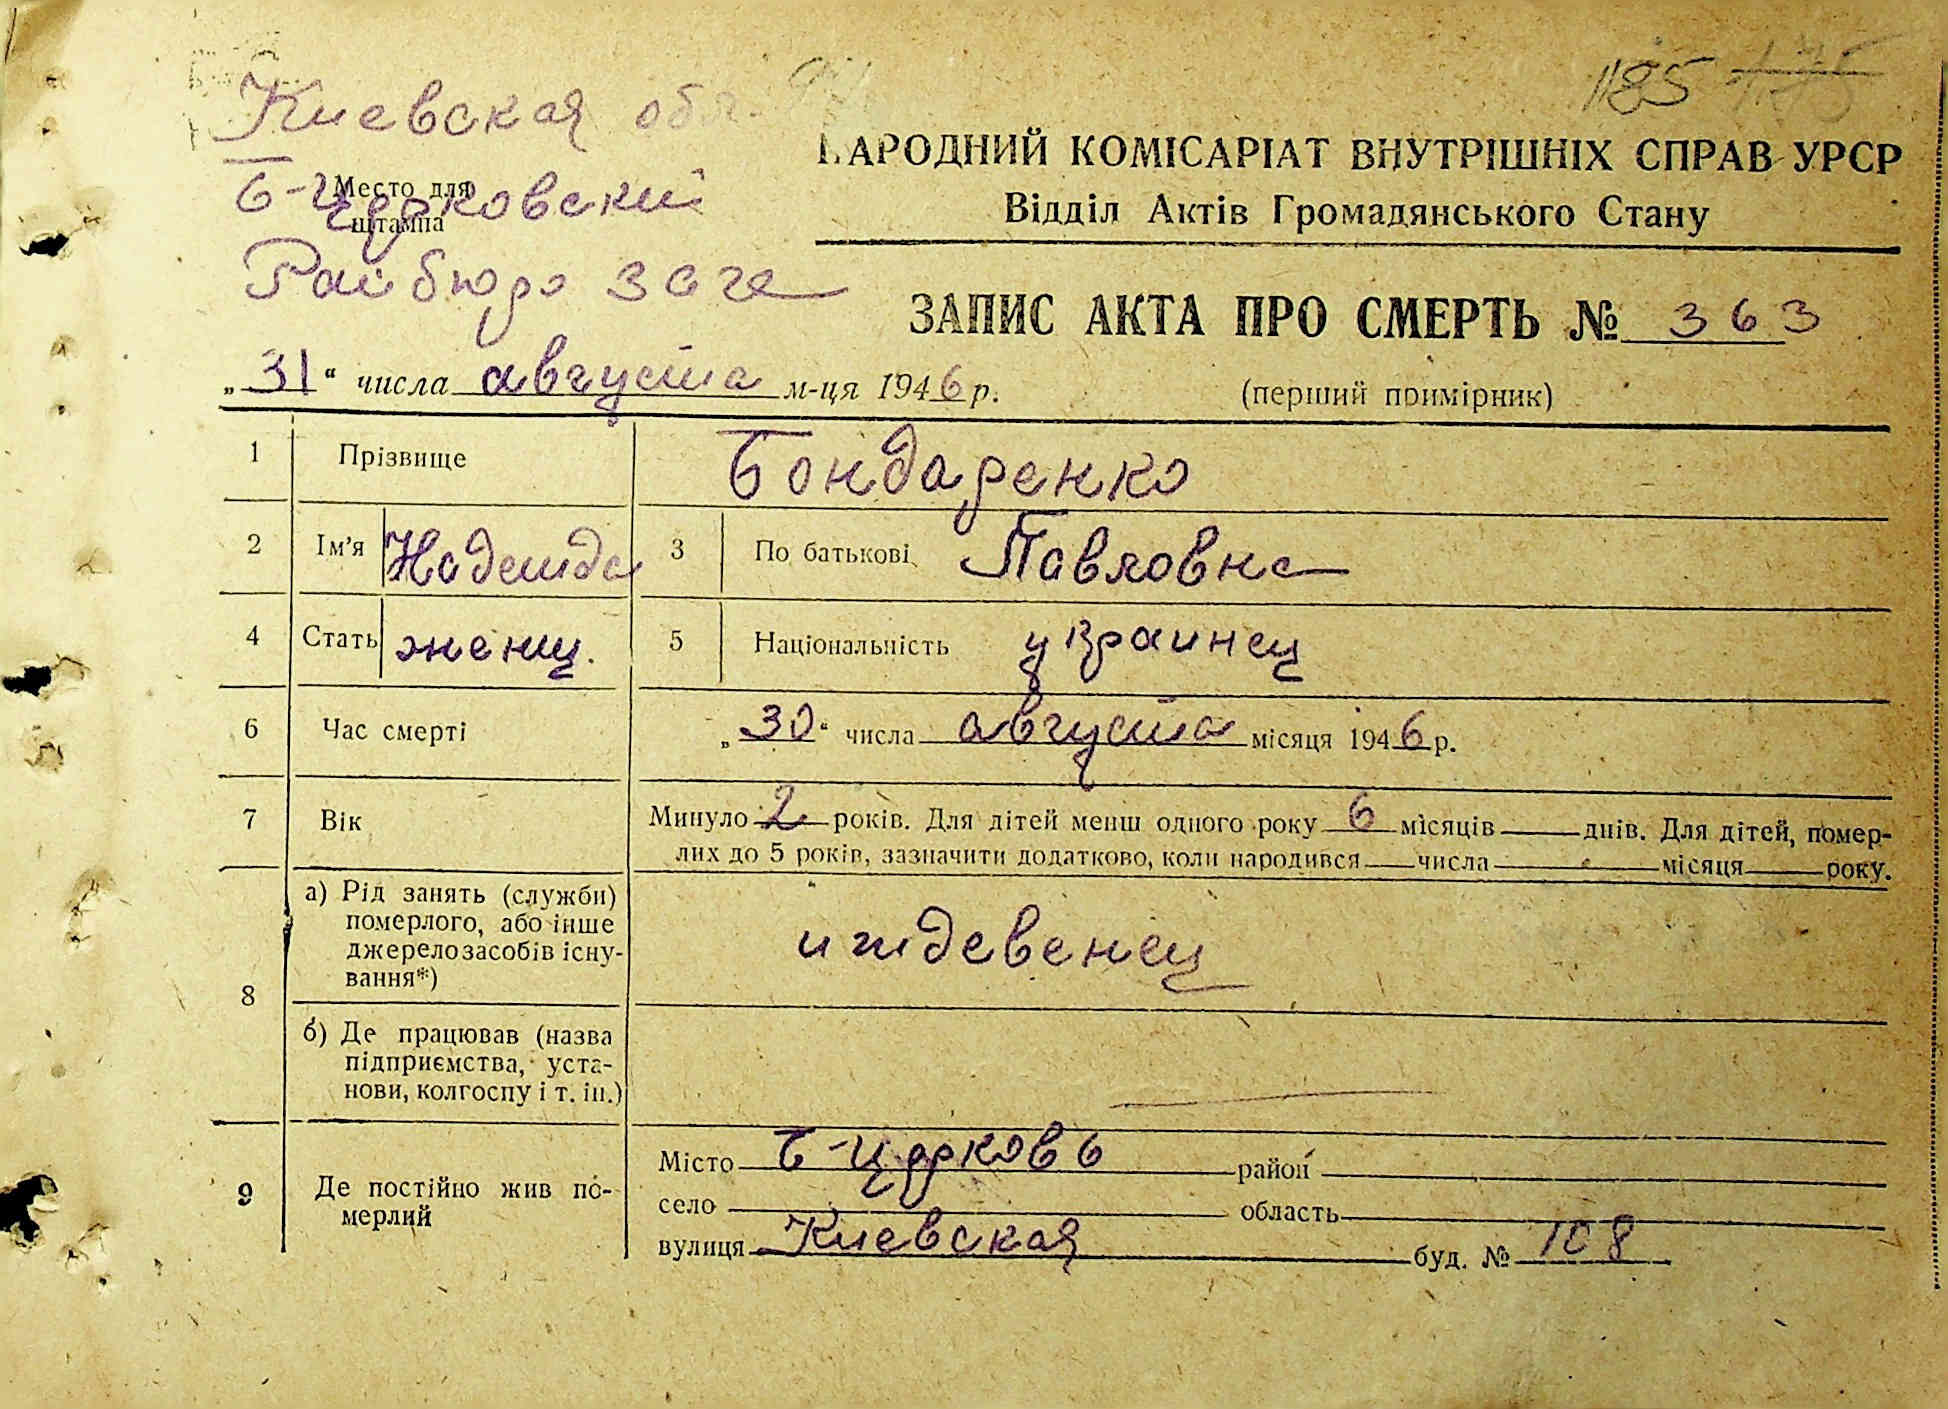 185 175
Киевская обл.
НАРОДНИЙ КОМІСАРІАТ ВНУТРІШНІХ СПРАВ УРСР
Место для
штампа
Б-Церковский
Відділ Актів Громадянського Стану
Райбюро загса
ЗАПИС АКТА ПРО СМЕРТЬ № 363
„31“ числа августа м-ця 1946 р.
(перший примірник)
1 Прізвище Бондаренко
2 Ім'я Надежда 3 По батькові Павловна
4 Стать женщ. 5 Національність украинец
6 Час смерті „30“ числа августа місяця 1946 р.
7 Вік Минуло 2 років. Для дітей менш одного року 6 місяців — днів. Для дітей, помер-
лих до 5 років, зазначити додатково, коли народився — числа — місяця — року.
8 а) Рід занять (служби)
померлого, або інше
джерело засобів існу-
вання*)
иждевенец
б) Де працював (назва
підприємства, уста-
нови, колгоспу і т. ін.)
—
9 Де постійно жив по-
мерлий
Місто Б-Церковь район
село область
вулиця Киевская буд. № 108